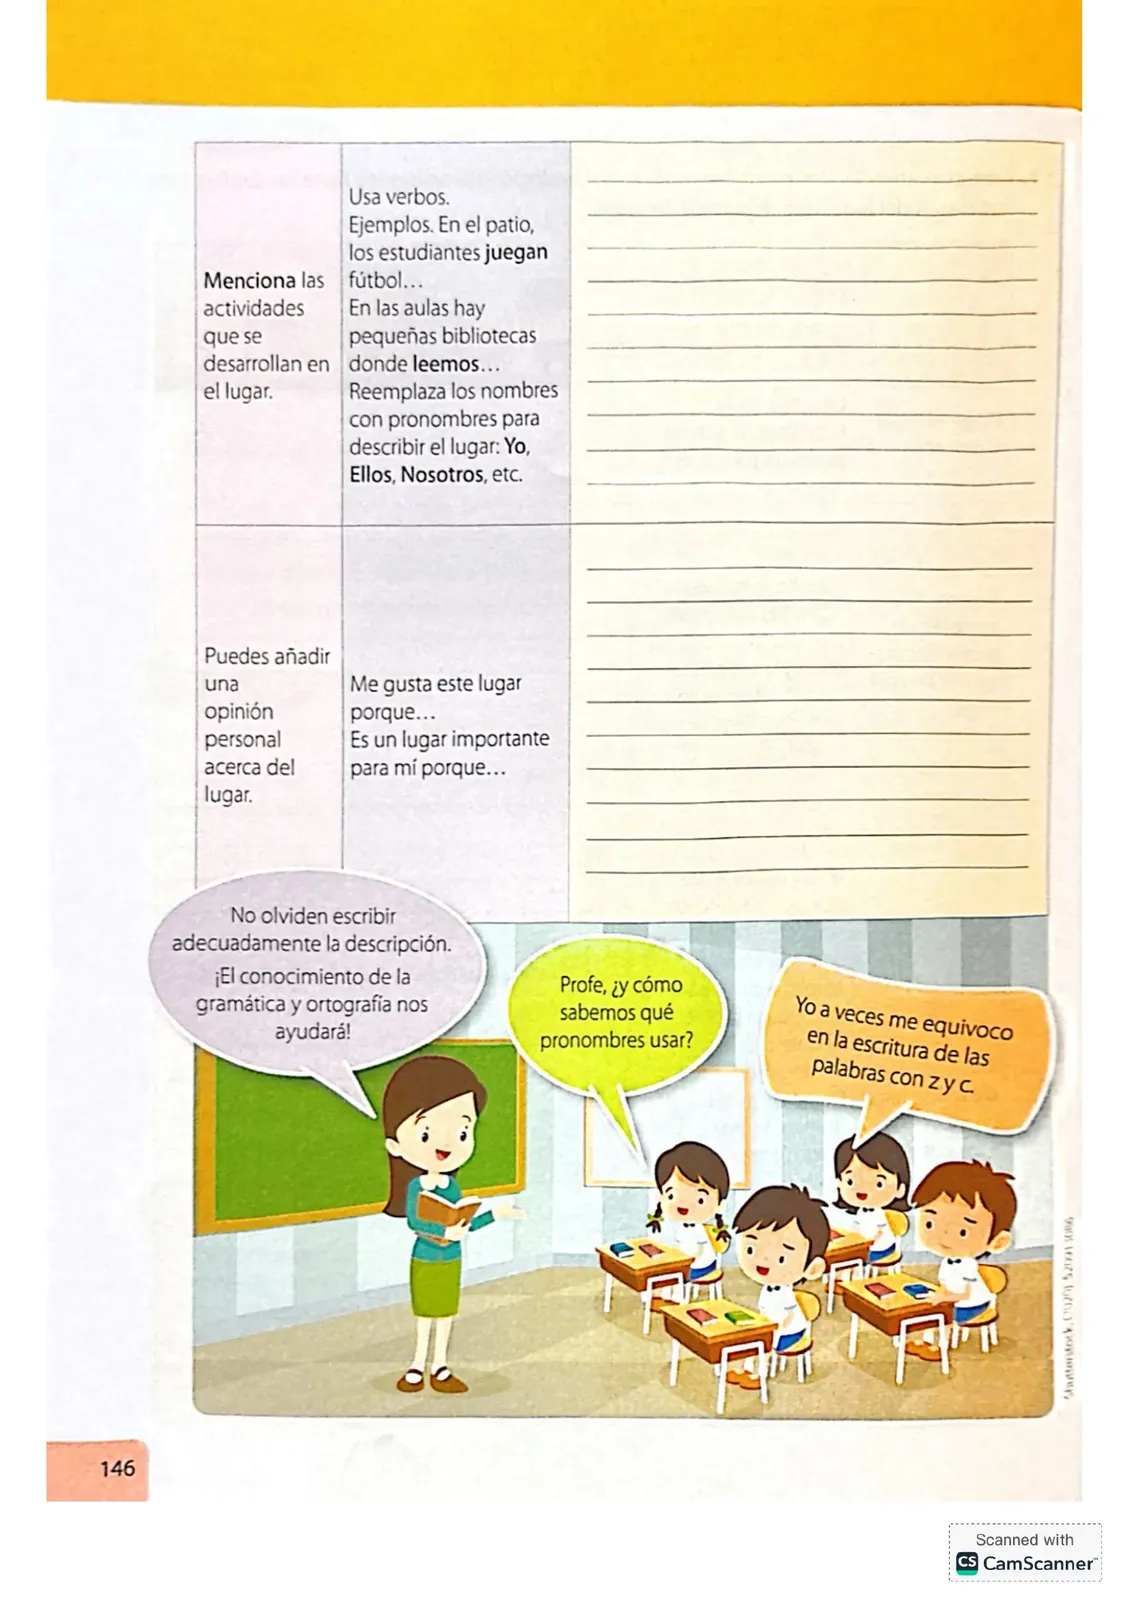 Menciona las
actividades
que se
desarrollan en
el lugar.
Usa verbos.
Ejemplos. En el patio,
los estudiantes juegan
fútbol...
En las aulas hay
pequeñas bibliotecas
donde leemos...
Reemplaza los nombres
con pronombres para
describir el lugar: Yo,
Ellos, Nosotros, etc.
Puedes añadir
una
opinión
personal
acerca del
lugar.
Me gusta este lugar
porque...
Es un lugar importante
para mí porque...
No olviden escribir
adecuadamente la descripción.
¡El conocimiento de la
gramática y ortografía nos
ayudará!
Profe, ¿y cómo
sabemos qué
pronombres usar?
Yo a veces me equivoco
en la escritura de las
palabras con z y c.
146
Scanned with
CS CamScanner